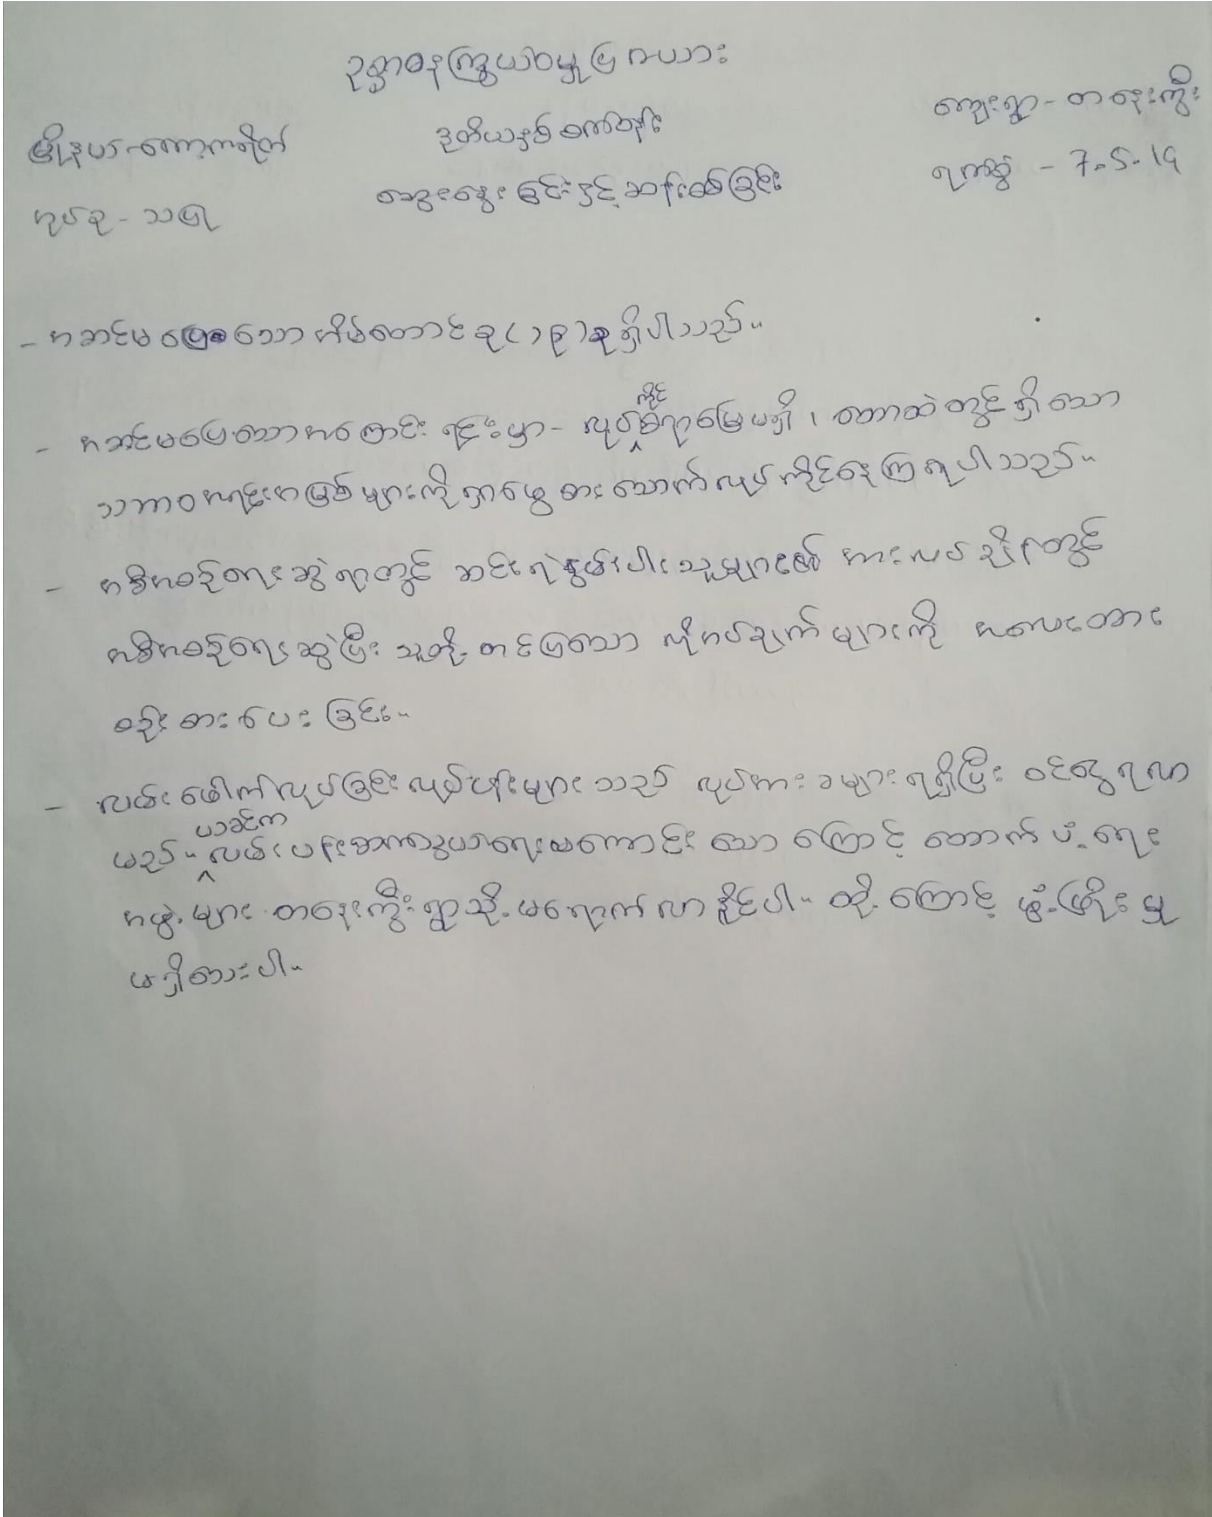 ဥစ္စာဓနကြွယ်ဝမှုပြဇယား
ကျေးရွာ - တနေးကွီး
မြို့နယ် - ကော့ကရိတ်
ဒုတိယနှစ် စက်ဝန်း
ရက်စွဲ - 7.5.19
ဆွေးနွေးခြင်းနှင့် ဆန်းစစ်ခြင်း
အုပ်စု - သပြု
- အဆင်မပြေသော အိမ်ထောင်စု (၁၉) စုရှိပါသည်။
- အဆင်မပြေသောအကြောင်းရင်းမှာ - လုပ်ကိုင်စရာမြေမရှိ၊ တောထဲတွင်ရှိသော
သဘာဝအရင်းအမြစ်များကို ရှာဖွေစားသောက်လုပ်ကိုင်နေကြရပါသည်။
- အစီအစဉ်ရေးဆွဲရာတွင် ဆင်းရဲနွမ်းပါးသူများ၏ အားလပ်ချိန်တွင်
အစီအစဉ်ရေးဆွဲပြီး သူတို့တင်ပြသော လိုအပ်ချက်များကို အလေးထား
စဉ်းစားပေးခြင်း။
- လမ်းဖေါက်လုပ်ခြင်းလုပ်ငန်းများသည် လုပ်အားခများရရှိပြီး ဝင်ငွေရလာ
မည်။ ယခင်က လမ်းပန်းဆက်သွယ်ရေးမကောင်းသောကြောင့် ထောက်ပံ့ရေး
အဖွဲ့များ တနေးကွီးရွာသို့ မရောက်လာနိုင်ပါ။ ထို့ကြောင့် ဖွံ့ဖြိုးမှု
မရှိသေးပါ။